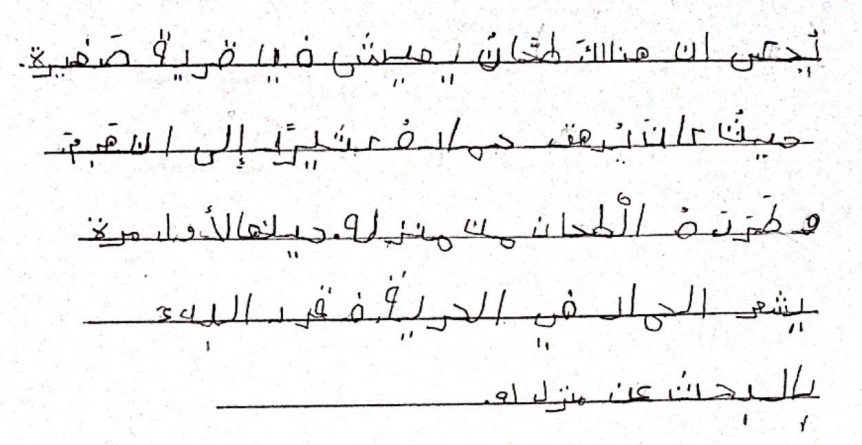 يُحكى ان هناكَ طحَّانٌ يعيش في قرية صَغيرة.
حيثُ كان يُرهق حماره كثيرًا إلى ان هَرِمَ
و طَرَدَهُ الْطحان من منزله. حينها لأول مرة
يشعر الحمار في الحرية. فقرر البدء
بالبحث عن منزل له.